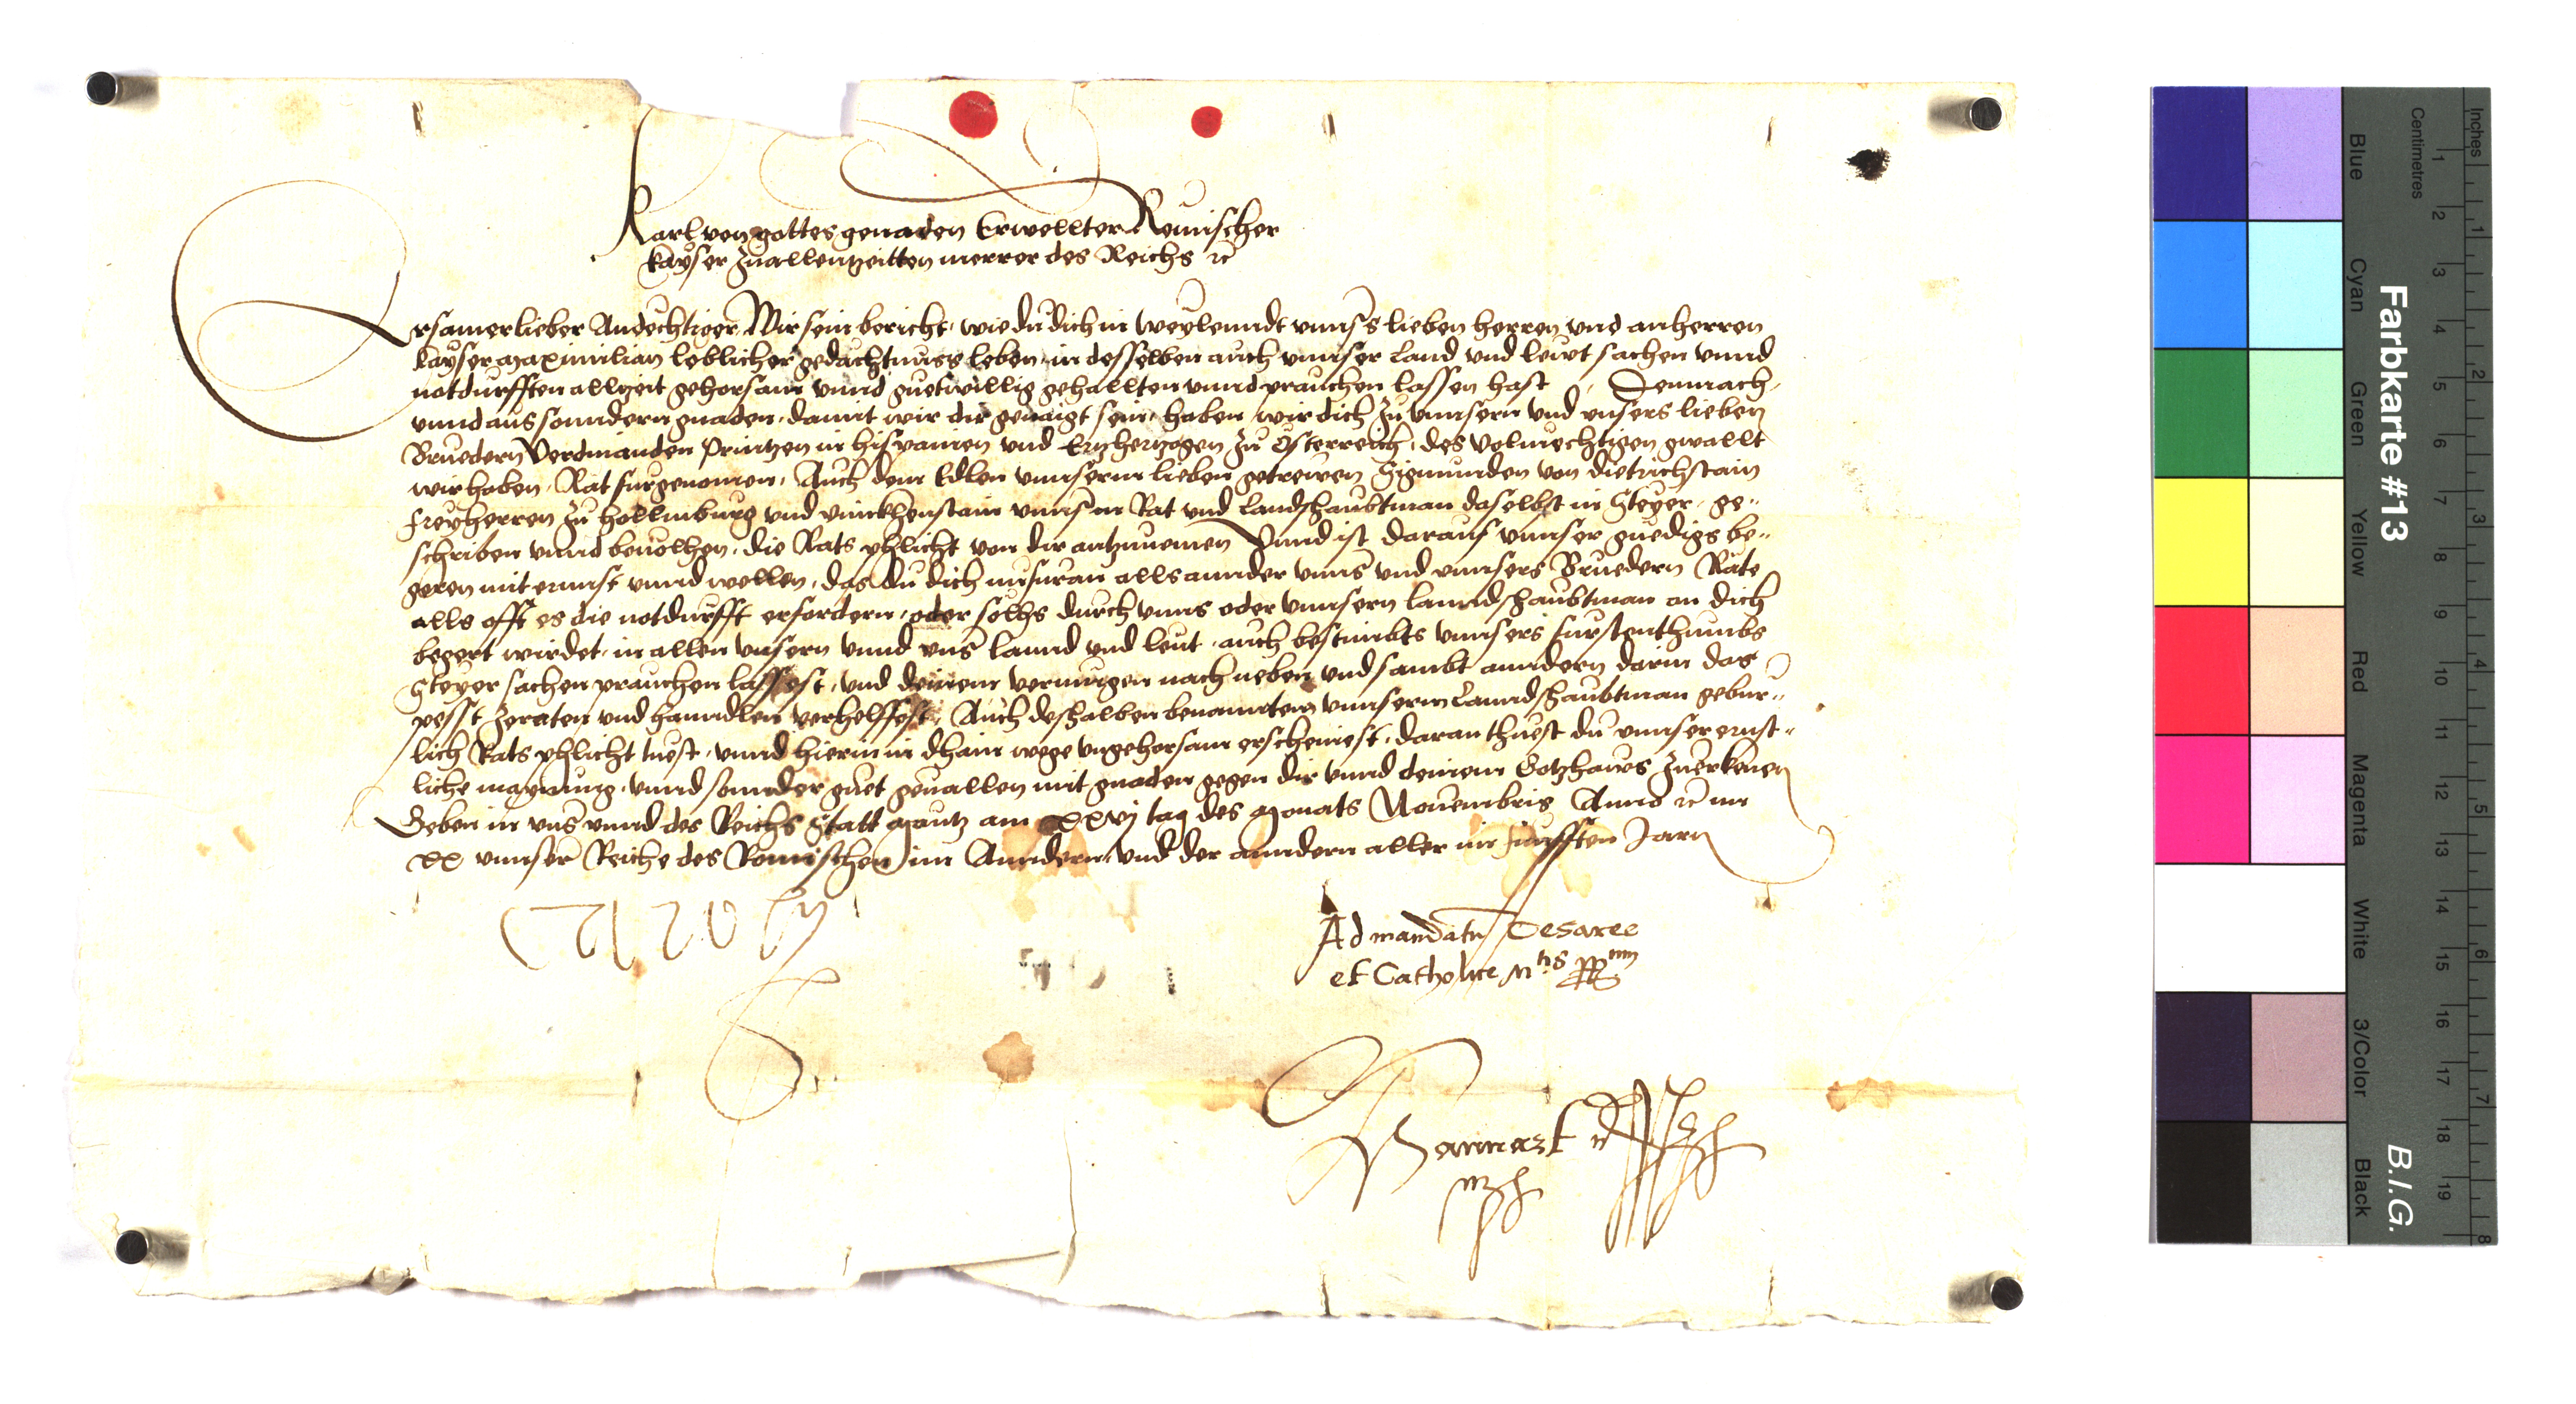 Karl von gottes genaden Erwellter Romischer
Kayser zuallentzeitten merrer des Reichs ꝛc
Ersamer lieber Andechtiger Wir sein bericht, wie du dich in weylenndt unnsers lieben herren und anherren
Kayser Maximilian loblicher gedachtnuss leben, in desselben auch unnser Land und leut sachen unnd
notdurfften allzeit gehorsam unnd guetwillig gehallten unnd prauchen lassen hast, Demnach,
unnd aus sonndern gnaden, damit wir dir genaigt sein, haben wir dich zu unnsern und unsers lieben
Bruedern Verdinanden Printzen in hispanien und Ertzhertzogen zu Osterreich, des volmechtigen gwallt
wir haben, Rat furgenomen, Auch dem Edlen unnserm lieben getrewen Sigmunden von Dietrichstain
freyherren zu hollnburg und vinckhenstain unnserm Rat und Landshaubtman daselbst in Steyer, ge-
schriben unnd bevolhen, die Rats phlicht von dir antzunemen Unnd ist darauf unnser gnedigs be-
geren mit ernnst unnd wellen, das du dich nufuran alls annder unns und unnsers Bruedern Räte
alls offt es die notdurfft erfordern, oder solhs durch unns oder unnsern lanndshaubtman an dich
begert wirdet, in allen unsern unnd uns lannd und leut, auch bestimbts unnsers furstenthumbs
Steyer sachen prauchen lassest, und deinem vermugen nach neben und sambt anndern darin das
pesst zeraten und hanndlen verhelffest, Auch deshalben benanntem unnserm Lanndshaubtman gebur-
lich Rats phlicht tuest, unnd hierin in dhain wege ungehorsam erscheinest, daran thuest du unnser ernst-
liche maynung, unnd sonnder guet gevallen mit gnaden gegen dir unnd deinem Gotzhaws zuerkennen
Geben in uns unnd des Reichs Statt Mäntz am XXVj tag des Monats Novembris Anno ꝛc im
XX unnser Reiche des Romischen im Anndern und der anndern aller im funfften Jarn
Ad mandatu Cesaree
et Catholice Mtis pp
Hannart